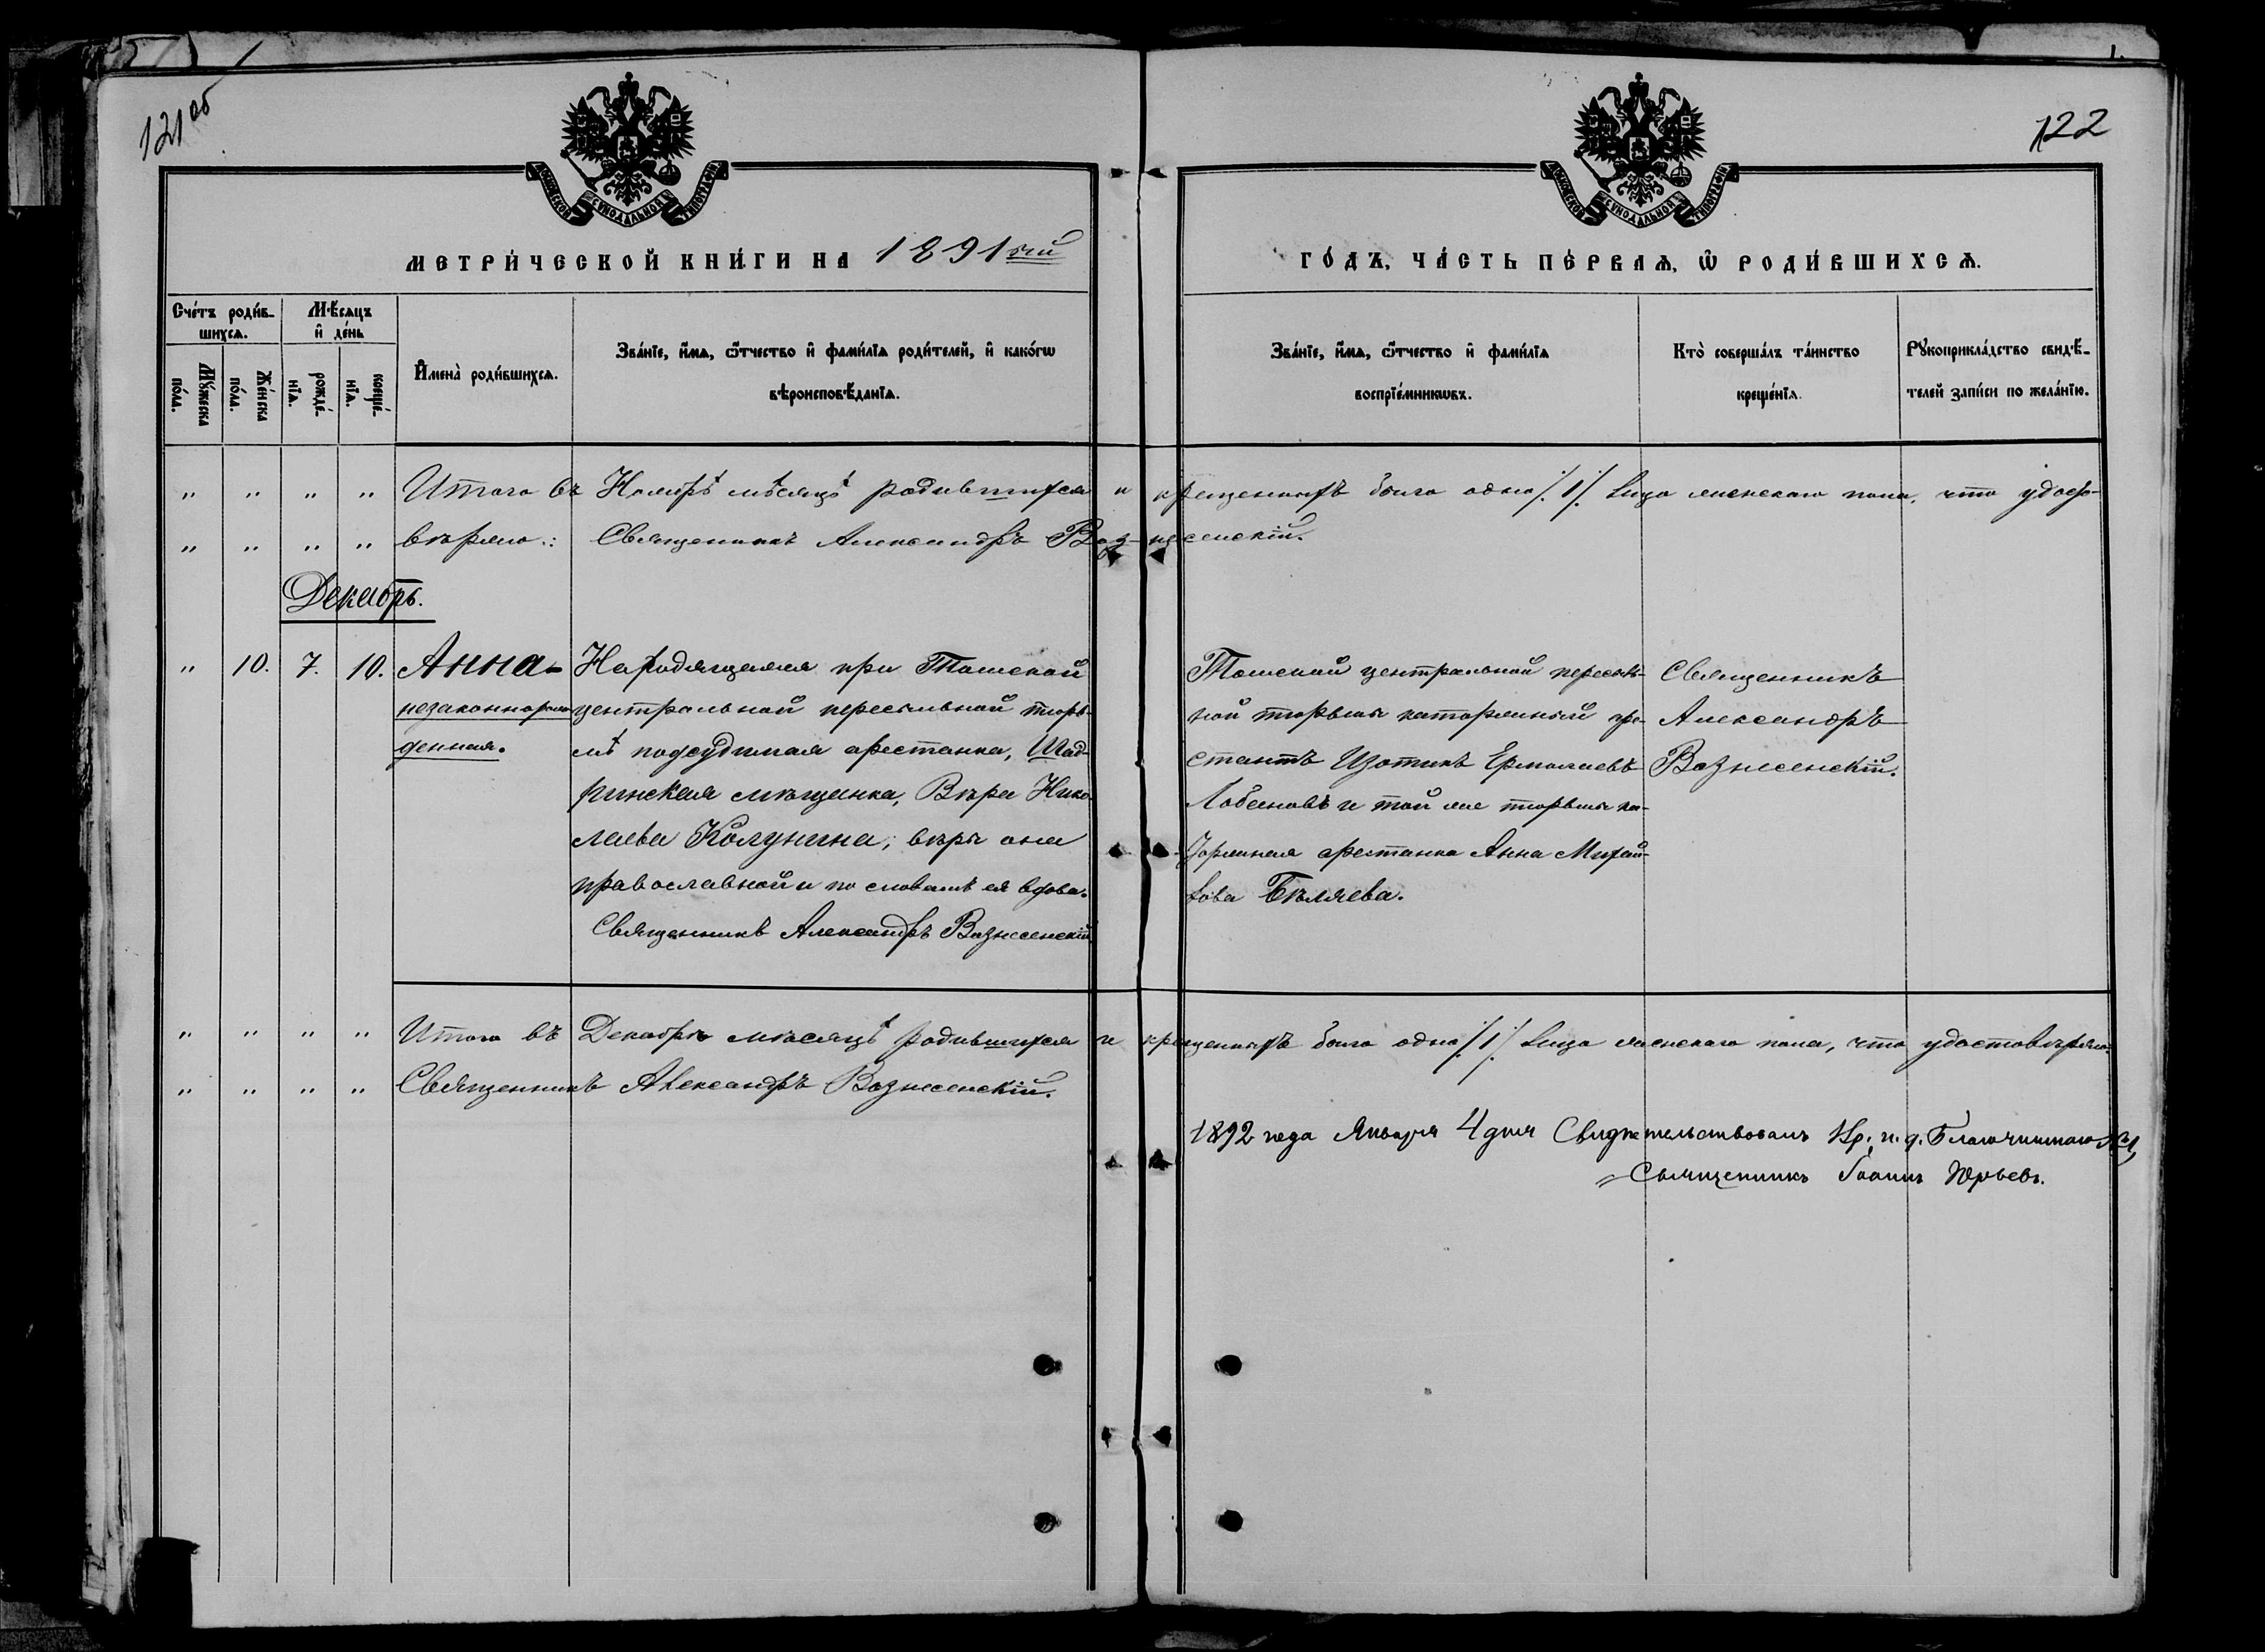 121 об
122
МОСКОВСКОЙ СѴНОДАЛЬНОЙ ТИПОГРАФІИ
МОСКОВСКОЙ СѴНОДАЛЬНОЙ ТИПОГРАФІИ
МЕТРИ́ЧЕСКОЙ КНИ́ГИ НА 1891ый
ГО́ДЪ, ЧА́СТЬ ПЕ́РВАѦ, Ѡ РОДИ́ВШИХСѦ.
Сче́тъ роди́в-
шихсѧ.
Мѣ́сѧцъ
и҆ де́нь
Мꙋ́жеска
по́ла.
Же́нска
по́ла.
рожде́-
нїѧ.
креще́-
нїѧ.
И҆мена̀ роди́вшихсѧ.
Зва́нїе, и҆́мѧ, ѻ҆́тчество и҆ фами́лїѧ роди́телей, и҆ како́гѡ
вѣроисповѣ́данїѧ.
Зва́нїе, и҆́мѧ, ѻ҆́тчество и҆ фами́лїѧ
воспрїе́мникѡвъ.
Кто̀ соверша́лъ та́инство
креще́нїѧ.
Рꙋкоприкла́дство свидѣ́-
телей за́писи по жела́нїю.
" " " " Итого въ Ноябрѣ мѣсяцѣ родившихся и крещенныхъ было одно /1/ лицо женскаго пола, что удосто-
" " " " вѣряю: Священникъ Александръ Вознесенскій.
Декабрь.
" 10. 7. 10. Анна-
незаконнорож-
денная.
Находящаяся при Томской
центральной пересыльной тюрь-
мѣ подсудимая арестанка, Шад-
ринская мѣщанка, Вѣра Нико-
лаева Колунина; вѣры она
православной и по словамъ ея вдова.
Священникъ Александръ Вознесенскій
Томской центральной пересыль-
ной тюрьмы каторжный аре-
стантъ Изотикъ Ермолаевъ
Лобановъ и той же тюрьмы ка-
торжная арестанка Анна Михай-
лова Бѣляева.
Священникъ
Александръ
Вознесенскій.
" " " " Итого въ Декабрѣ мѣсяцѣ родившихся и крещенныхъ было одно /1/ лицо женскаго пола, что удостовѣряю:
" " " " Священникъ Александръ Вознесенскій.
1892 года Января 4 дня Свидѣтельствовалъ и. д. Благочиннаго №1,
Священникъ Іоаннъ Юрьевъ.